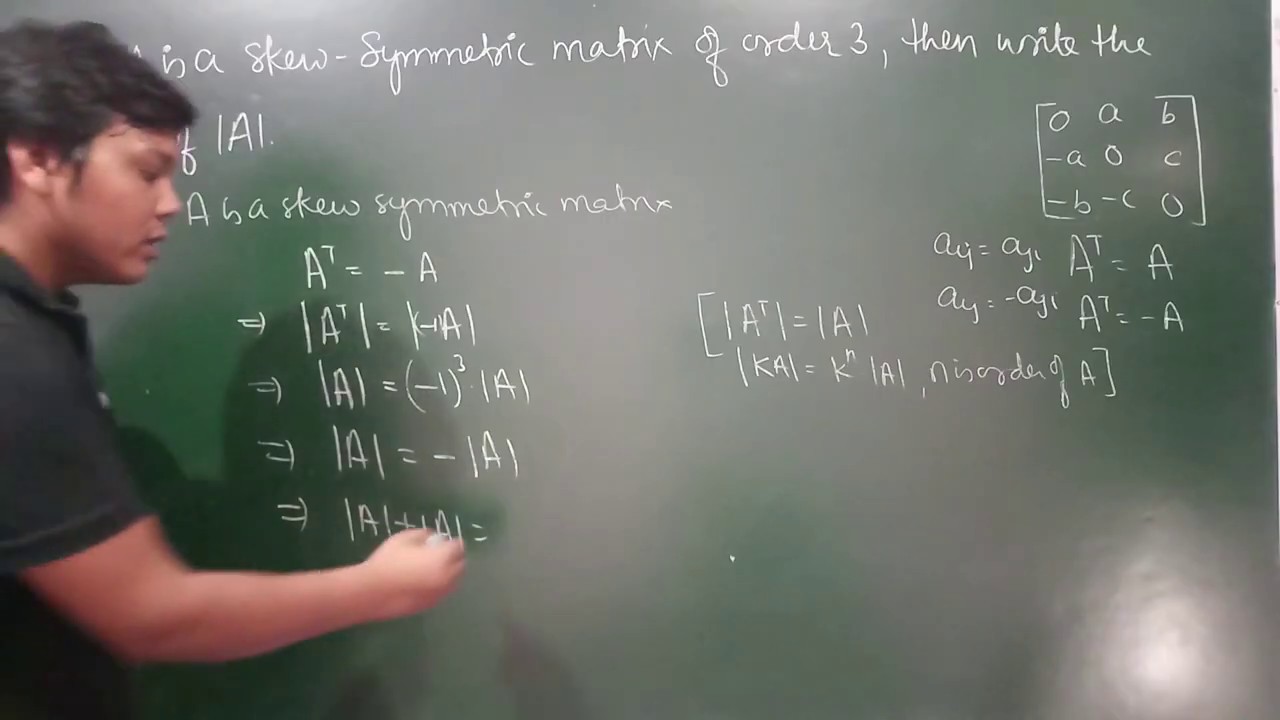 is a skew-Symmetric matrix of order 3, then write the
f |A|.
A is a skew symmetric matrix
Aᵀ = - A
⇒ |Aᵀ| = |-1A|
⇒ |A| = (-1)³.|A|
⇒ |A| = - |A|
⇒ |A|+|A| =
0 a b
-a 0 c
-b -c 0
aij = aji Aᵀ = A
aij = -aji Aᵀ = -A
[|Aᵀ| = |A|
|KA| = Kⁿ |A|, n is order of A]